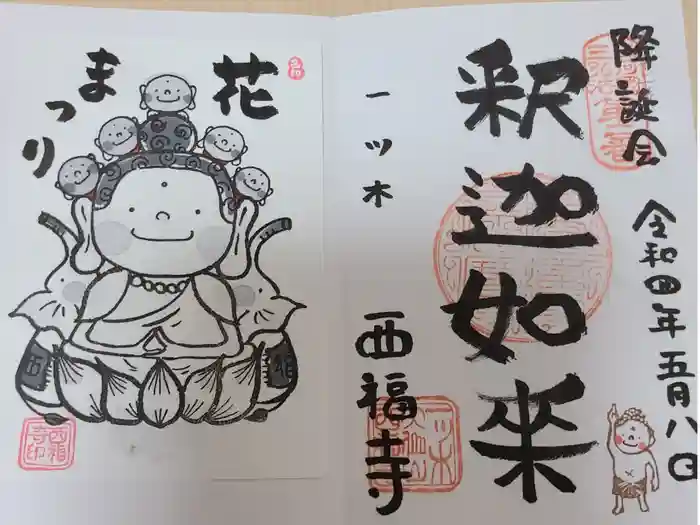 降誕会
令和四年五月八日
釈迦如来
一ツ木
西福寺
花
まつり
西福
寺印